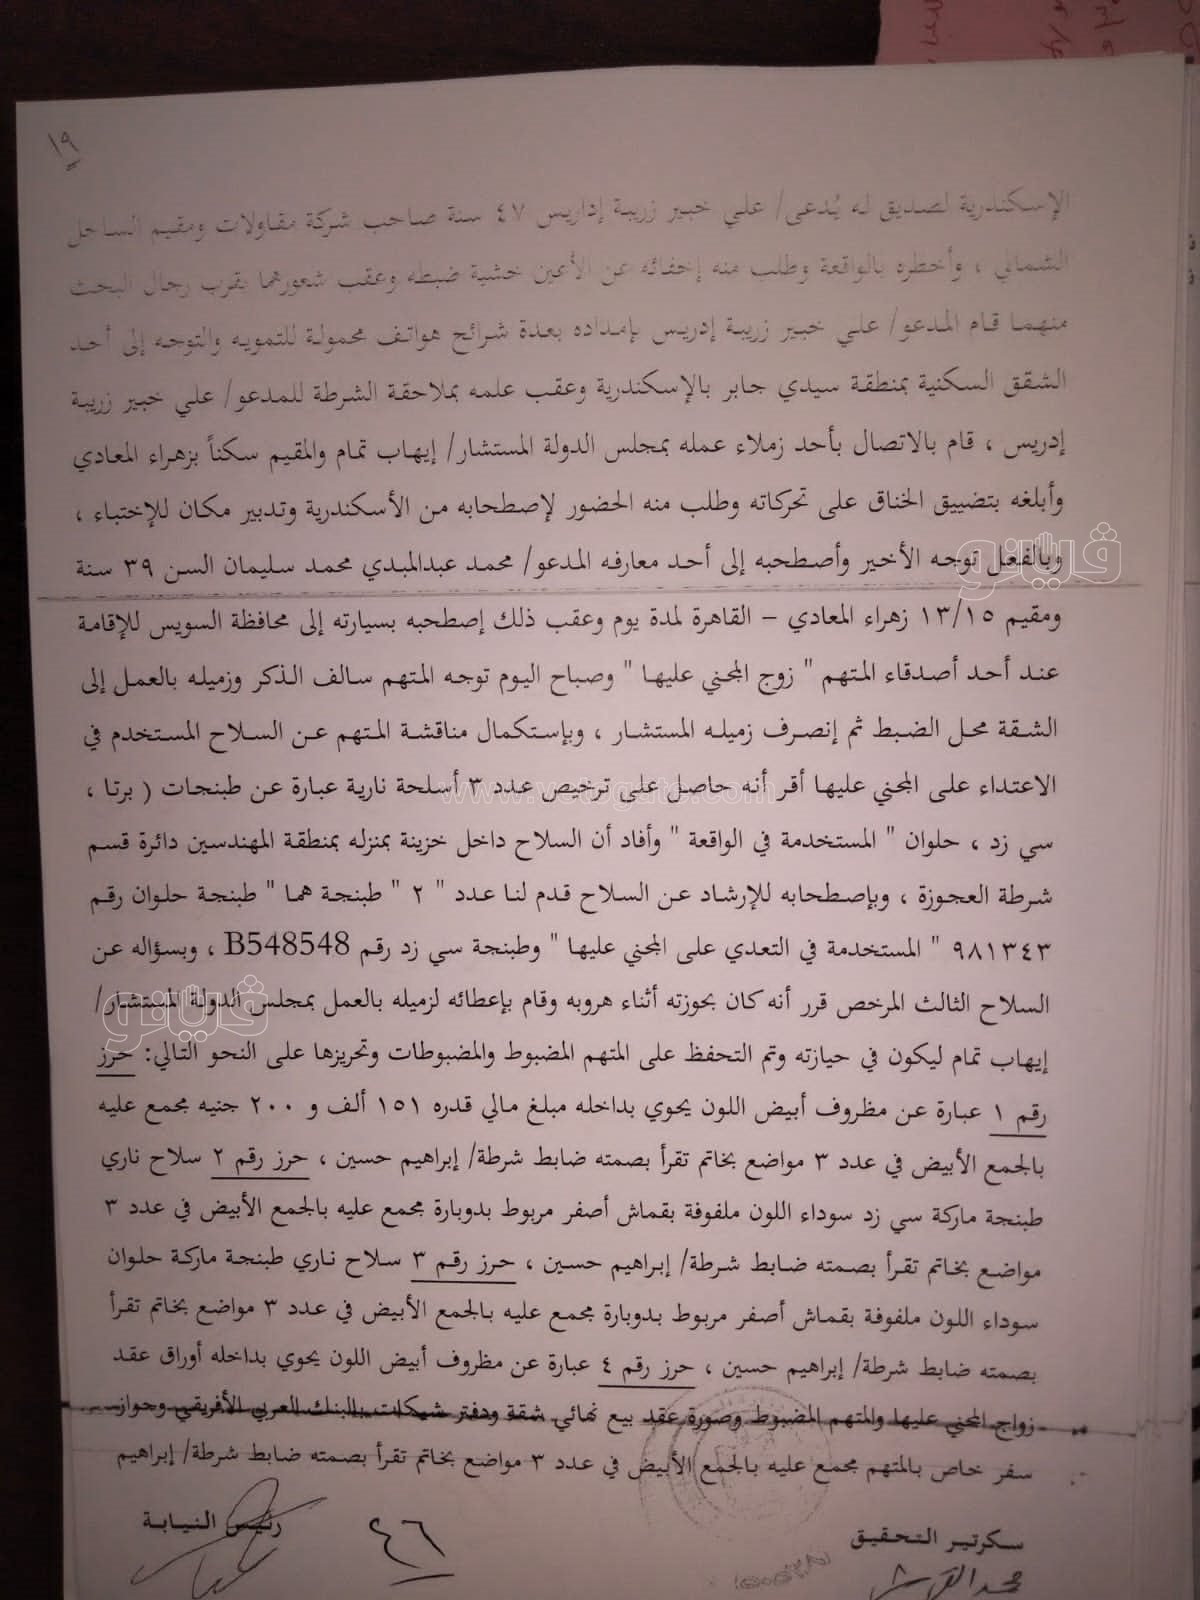 ١٩
الإسكندرية لصديق له يُدعى/ علي خبير زريبة إداريس ٤٧ سنة صاحب شركة مقاولات ومقيم الساحل
الشمالي ، وأخطره بالواقعة وطلب منه إخفائه عن الأعين خشية ضبطه وعقب شعورهما بقرب رجال البحث
منهما قام المدعو/ علي خبير زريبة إدريس بإمداده بعدة شرائح هواتف محمولة للتمويه والتوجه إلى أحد
الشقق السكنية بمنطقة سيدي جابر بالإسكندرية وعقب علمه بملاحقة الشرطة للمدعو/ علي خبير زريبة
إدريس ، قام بالاتصال بأحد زملاء عمله بمجلس الدولة المستشار/ إيهاب تمام والمقيم سكناً بزهراء المعادي
وأبلغه بتضييق الخناق على تحركاته وطلب منه الحضور لإصطحابه من الأسكندرية وتدبير مكان للإختباء ،
وبالفعل توجه الأخير وأصطحبه إلى أحد معارفه المدعو/ محمد عبدالمبدي محمد سليمان السن ٣٩ سنة
ومقيم ١٣/١٥ زهراء المعادي – القاهرة لمدة يوم وعقب ذلك إصطحبه بسيارته إلى محافظة السويس للإقامة
عند أحد أصدقاء المتهم " زوج المجني عليها " وصباح اليوم توجه المتهم سالف الذكر وزميله بالعمل إلى
الشقة محل الضبط ثم إنصرف زميله المستشار ، وبإستكمال مناقشة المتهم عن السلاح المستخدم في
الاعتداء على المجني عليها أقر أنه حاصل على ترخيص عدد ٣ أسلحة نارية عبارة عن طبنجات ( برتا ،
سي زد ، حلوان " المستخدمة في الواقعة " وأفاد أن السلاح داخل خزينة بمنزله بمنطقة المهندسين دائرة قسم
شرطة العجوزة ، وبإصطحابه للإرشاد عن السلاح قدم لنا عدد " ٢ " طبنجة هما " طبنجة حلوان رقم
٩٨١٣٤٣ " المستخدمة في التعدي على المجني عليها " وطبنجة سي زد رقم B548548 ، وبسؤاله عن
السلاح الثالث المرخص قرر أنه كان بحوزته أثناء هروبه وقام بإعطائه لزميله بالعمل بمجلس الدولة المستشار/
إيهاب تمام ليكون في حيازته وتم التحفظ على المتهم المضبوط والمضبوطات وتحريزها على النحو التالي: حرز
رقم ١ عبارة عن مظروف أبيض اللون يحوي بداخله مبلغ مالي قدره ١٥١ ألف و ٢٠٠ جنيه مجمع عليه
بالجمع الأبيض في عدد ٣ مواضع بخاتم تقرأ بصمته ضابط شرطة/ إبراهيم حسين ، حرز رقم ٢ سلاح ناري
طبنجة ماركة سي زد سوداء اللون ملفوفة بقماش أصفر مربوط بدوبارة مجمع عليه بالجمع الأبيض في عدد ٣
مواضع بخاتم تقرأ بصمته ضابط شرطة/ إبراهيم حسين ، حرز رقم ٣ سلاح ناري طبنجة ماركة حلوان
سوداء اللون ملفوفة بقماش أصفر مربوط بدوبارة مجمع عليه بالجمع الأبيض في عدد ٣ مواضع بخاتم تقرأ
بصمته ضابط شرطة/ إبراهيم حسين ، حرز رقم ٤ عبارة عن مظروف أبيض اللون يحوي بداخله أوراق عقد
زواج المجني عليها والمتهم المضبوط وصورة عقد بيع نهائي شقة ودفتر شيكات بالبنك العربي الأفريقي وجواز
سفر خاص بالمتهم مجمع عليه بالجمع الأبيض في عدد ٣ مواضع بخاتم تقرأ بصمته ضابط شرطة/ إبراهيم
سكرتير التحقيق
رئيس النيابة
٤٦
ڤيتو
www.vetogate.com
ڤيتو